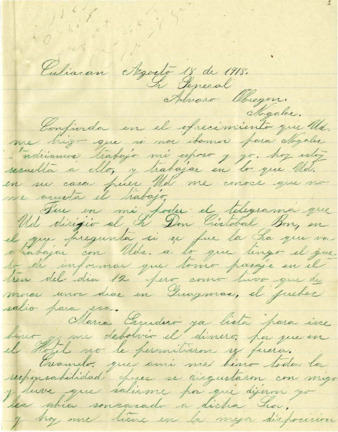 Culiacan Agosto 18 de 1918.
Sr General
Alvaro Obregon.
Nogales.
Confiada en el ofrecimiento que Ud.
me hizo que si nos ibamos para Nogales
trabajo mi esposo y yo. hoy estoy
resuelta a ello, y trabajar en lo que Ud.
en su casa pues Ud me conoce que no
me asusta el trabajo.
Fue en mi poder el telegrama que
Ud dirigio al Sr Don Cristobal Bon, en
el que pregunta si se fue la Sra que va
a trabajar con Uds. a lo que tengo el gus-
to de informar que tomo pasaje en el
tren del dia 12 pero como tuvo que de
morar unos dias en Guaymas, el Jueves
salio para esa.
Maria ya lista para irse
tambien y me debolvio el dinero, por que en
el Hotel no le permitieron se fuera.
En cuanto, que a mi me hecho toda la
responsabilidad y que se disgustaron con migo
y tuve que salirme por que dijeron yo
era abia sonsacado a dicha Sra.
y hoy me tiene en la mejor disposicion